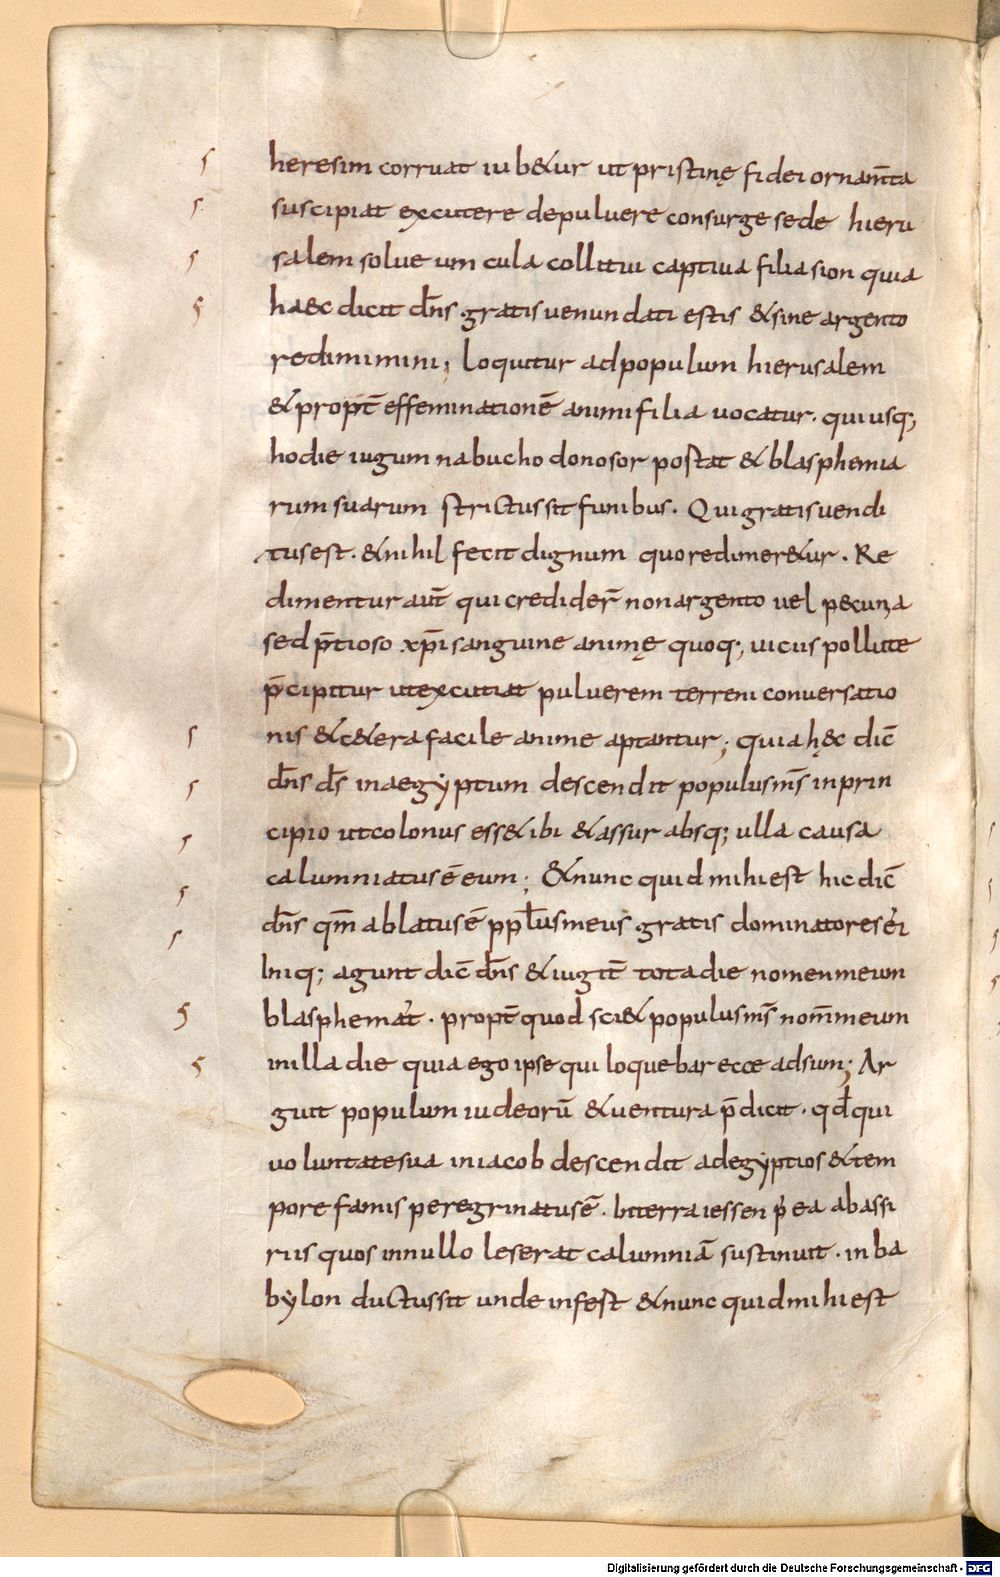 heresim corruat iub&ur ut pristinę fidei ornam̅ta
suscipiat excutere depuluere consurge sede hieru
salem solue uincula colli tui captiua filia sion quia
haec dicit dn̅s gratis uenundati estis & sine argento
redimimini; Loquitur ad populum hierusalem
& propt̅ effeminatione̅ animi filia uocatur. qui usq;
hodie iugum nabuchodonosor postat & blasphemia
rum suarum strictus sit funibus. Qui gratis uendi
tus est. & nihil fecit dignum quo redimer&ur. Re
dimentur aut̅ qui credider̅ non argento uel pecunia
sed p̅tioso xp̅i sanguine animę quoq; uiciis pollute
p̅cipitur ut excutiat puluerem terreni conuersatio
nis & c&era facile anime aptantur; quia hęc dic̅
dn̅s ds̅ in aegyptum descendit populus ms̅ in prin
cipio ut colonus ess& ibi & assur absq; ulla causa
calumniatus e̅ eum; & nunc quid mihi est hic dic̅
dn̅s qm̅ ablatus e̅ ppl̅us meus gratis dominatores ei
Iniq; agunt dic̅ dn̅s & iugit̅ tota die nomen meum
blasphemat̅. propt̅ quod sci& populus ms̅ nom̅ meum
in illa die quia ego ipse qui loquebar ecce adsum; Ar
guit populum iudeoru̅ & uentura p̅dicit. qd̅ qui
uoluntate sua in iacob descendit ad egyptios & tem
pore famis peregrinatus e̅. In terra iessen p ea ab assi
riis quos in nullo leserat calumnia̅ sustinuit. in ba
bylon ductus sit unde infest & nunc quid mihi est
Digitalisierung gefördert durch die Deutsche Forschungsgemeinschaft - DFG